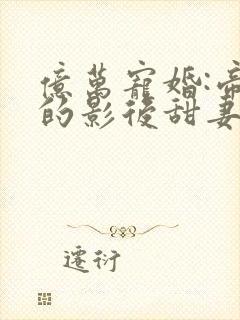 億萬寵婚:帝
的影後甜妻
遷衍